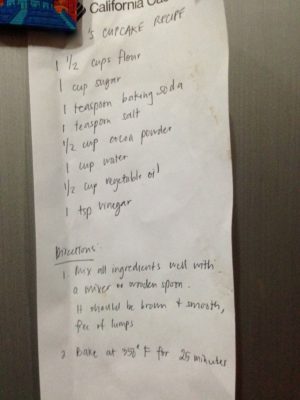 California
's CUPCAKE RECIPE
1 1/2 cups flour
1 cup sugar
1 teaspoon baking soda
1 teaspoon salt
1/2 cup cocoa powder
1 cup water
1/2 cup vegetable oil
1 tsp vinegar
Directions
1. Mix all ingredients well with
a mixer or wooden spoon.
It should be brown & smooth,
free of lumps
2. Bake at 350° F for 25 minutes